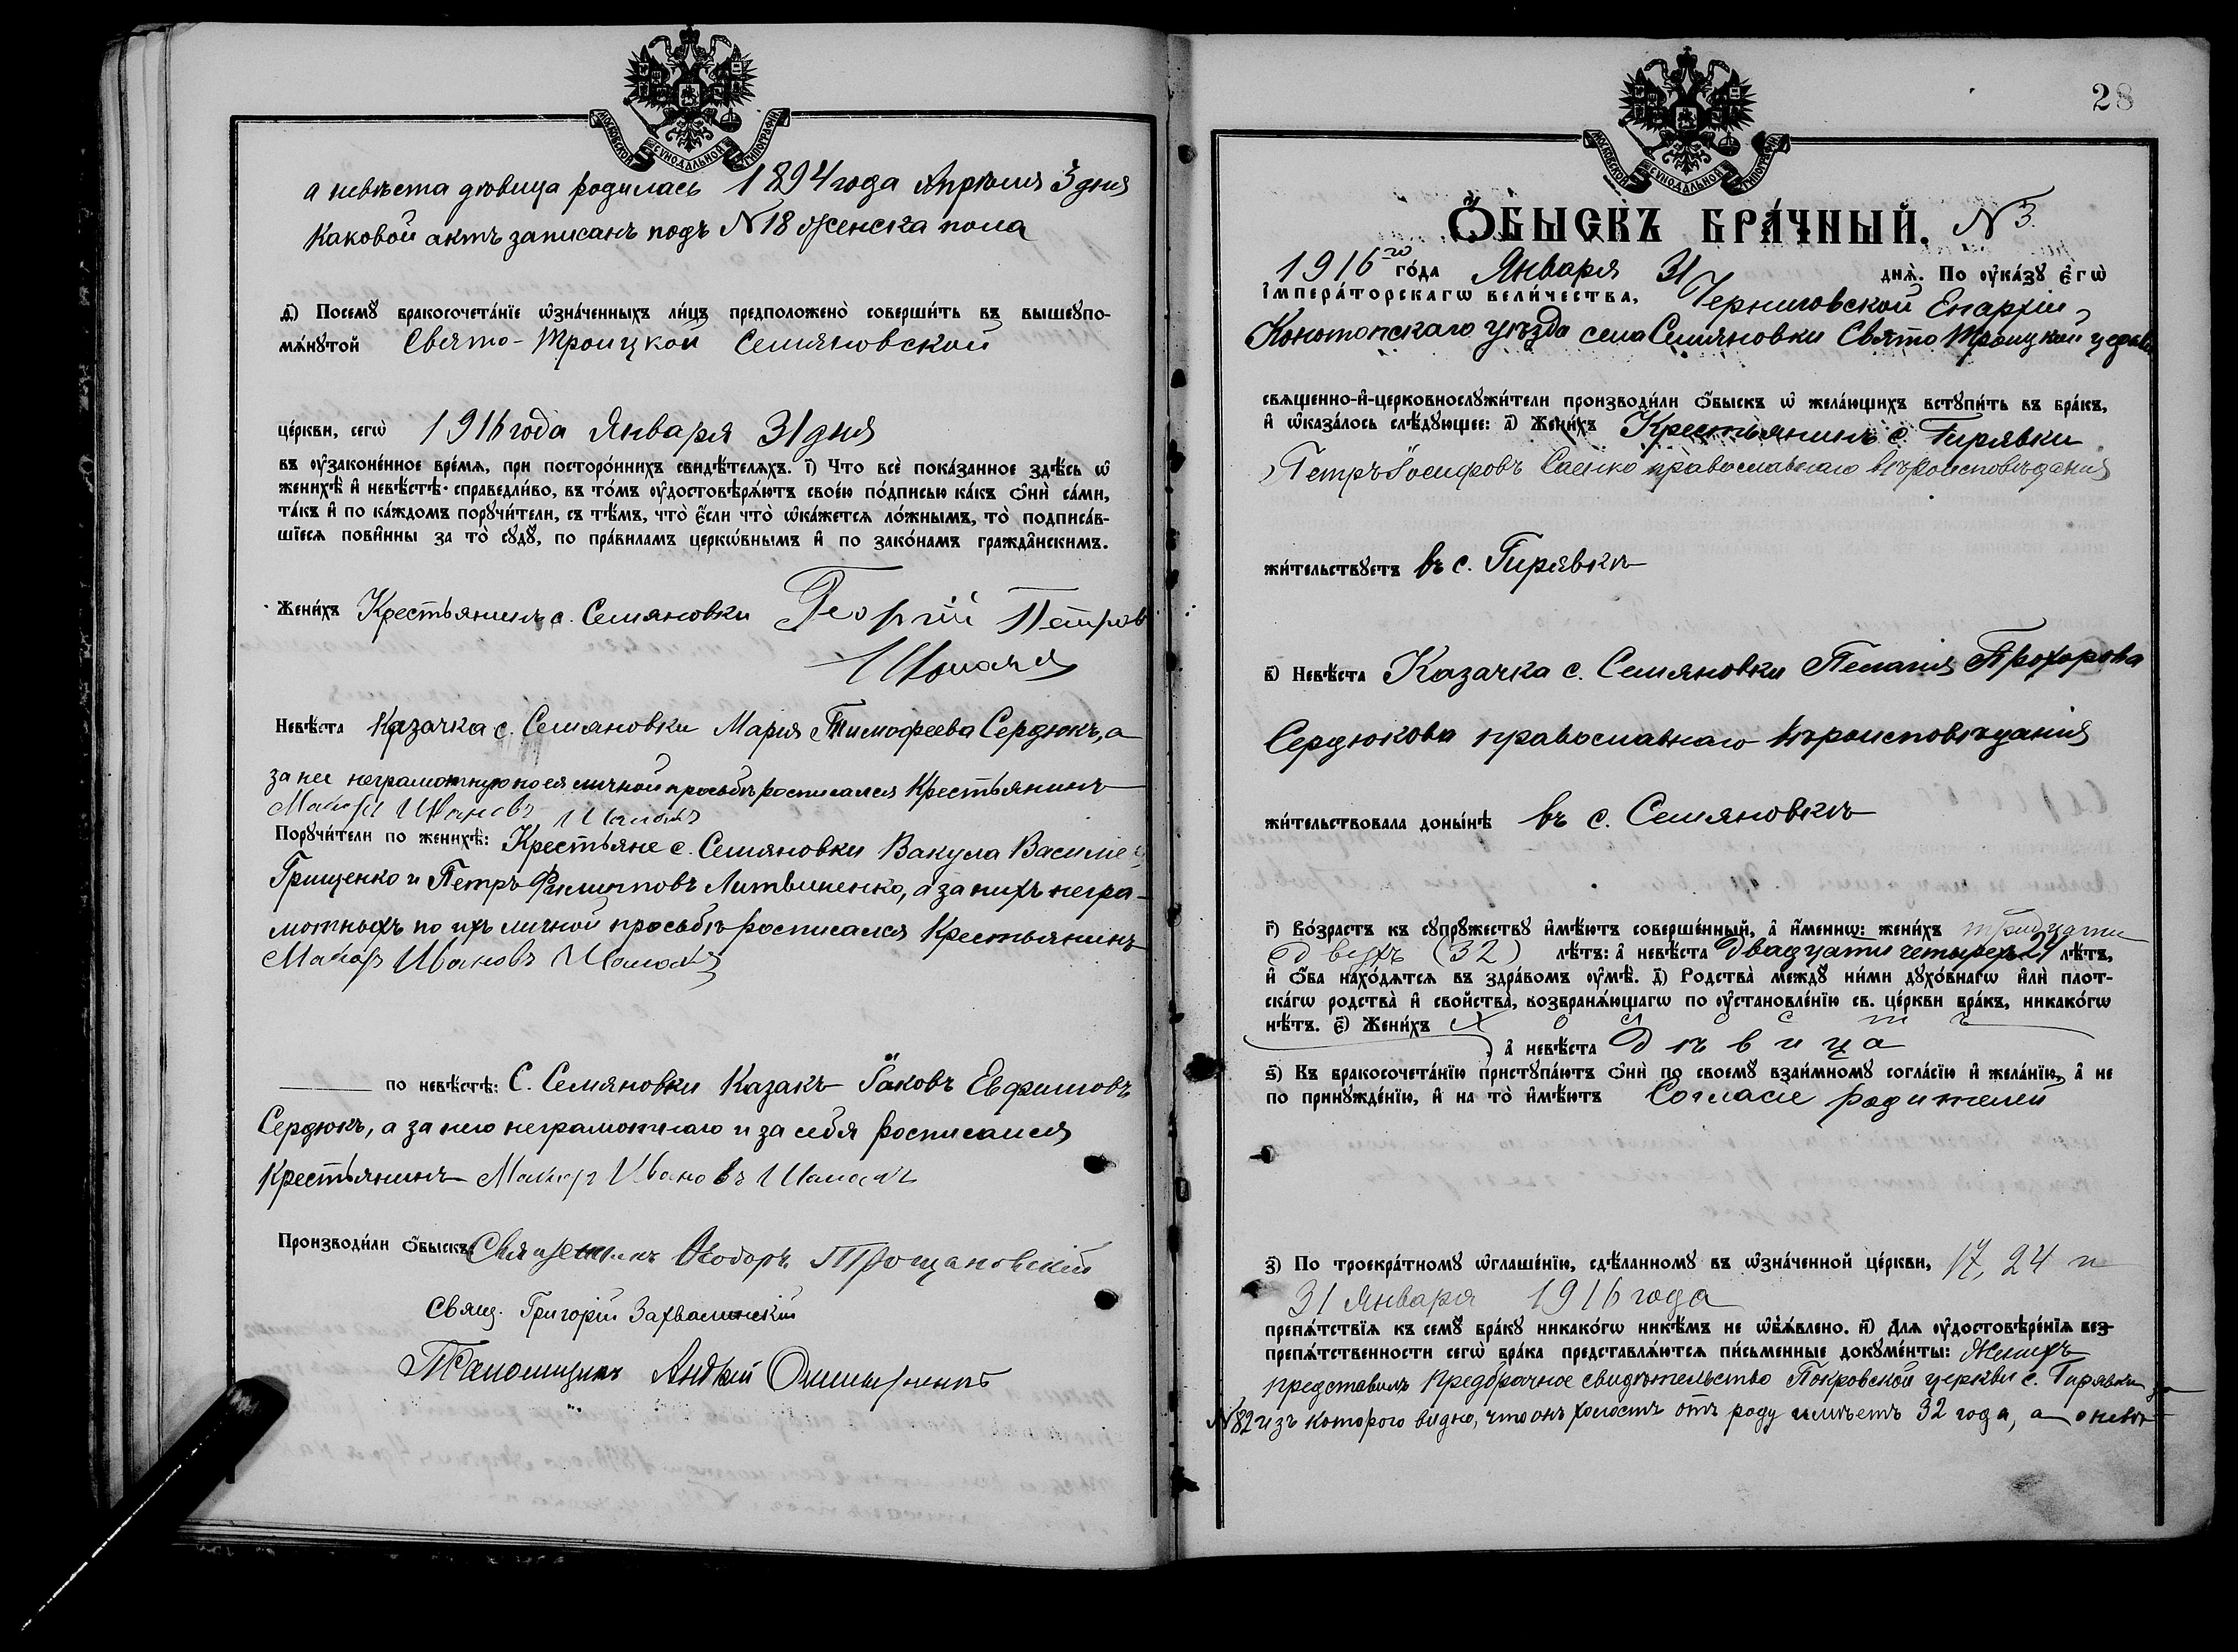 МОСКОВСКОЙ СѴНОДАЛЬНОЙ ТИПОГРАФІИ
а невѣста дѣвица родилась 1894 года Апрѣля 3 дня
каковой актъ записанъ подъ N 18 женска пола
д҃і) Посемꙋ̀ бракосочета́нїе ѡ҆зна́ченныхъ ли́цъ предположено̀ соверши́ть въ вышеꙋпо-
мѧ́нꙋтой Свято-Троицкой Семяновской
це́ркви, сегѡ̀ 1916 года Января 31 дня
въ ᲂу҆законе́нное вре́мѧ, при посторо́ннихъ свидѣ́телѧхъ. і҃) Что всѐ пока́занное здѣ́сь ѡ҆
женихѣ̀ и҆ невѣ́стѣ справедли́во, въ то́мъ ᲂу҆достовѣрѧ́ютъ свое́ю по́дписью ка́къ ѻ҆нѝ са́ми,
та́къ и҆ по ка́ждомъ порꙋчи́тели, съ тѣ́мъ, что̀ є҆́сли что̀ ѡ҆ка́жетсѧ ло́жнымъ, то̀ подписа́в-
шїесѧ пови́нны за то̀ сꙋдꙋ̀, по пра́виламъ церкѡ́внымъ и҆ по зако́намъ гражда́нскимъ.
Жени́хъ Крестьянинъ с. Семяновки Георгій Петров
Невѣ́ста Казачка с. Семяновки Марія Тимофеева Сердюкъ, а
за нее неграмотную по ея личной просьбѣ росписался Крестьянинъ
Ивановъ
Порꙋчи́тели по женихѣ̀: Крестьяне с. Семяновки Вакула Василіев
Грищенко и Петръ Филипповъ Литвиненко, а за нихъ негра-
мотныхъ по ихъ личной просьбѣ росписался Крестьянинъ
Ивановъ
по невѣ́стѣ: С. Семяновки Казакъ Іаковъ Евфимовъ
Сердюкъ, а за него неграмотнаго и за себя росписался
Крестьянинъ Ивановъ
Производи́ли ѻ҆́быскъ: Священникъ Ѳеодоръ Трощановскій
Свящ. Григорій Захвалинскій
Псаломщикъ Андрей
28
МОСКОВСКОЙ СѴНОДАЛЬНОЙ ТИПОГРАФІИ
Ѻ҆́БЫСКЪ БРА́ЧНЫЙ. N 3.
1916го го́да Января 31 днѧ̀. По ᲂу҆ка́зꙋ є҆гѡ̀
і҆мпера́торскагѡ вели́чества, Черниговской Епархіи,
Конотопскаго уѣзда села Семяновки Свято Троицкой церкви
свѧще́нно-и҆-церковнослꙋжи́тели производи́ли ѻ҆́быскъ ѡ҆ жела́ющихъ встꙋпи́ть въ бра́къ,
и҆ ѡ҆каза́лось слѣ́дꙋющее: а҃) Жени́хъ Крестьянинъ с. Гирявки
Петръ Іосифовъ Саенко православнаго вѣроисповѣданія
жи́тельствꙋетъ въ с. Гирявкѣ
в҃) Невѣ́ста Казачка с. Семяновки Пелагія Прохорова
Сердюкова православнаго вѣроисповѣданія
жи́тельствовала доны́нѣ въ с. Семяновкѣ
г҃) Во́зрастъ къ сꙋпрꙋ́жествꙋ и҆мѣ́ютъ соверше́нный, а҆ и҆́менно: жени́хъ тридцати
двухъ (32) лѣ́тъ: а҆ невѣ́ста двадцати четырехъ 24 лѣ́тъ,
и҆ ѻ҆́ба нахо́дѧтсѧ въ здра́вомъ ᲂу҆мѣ̀. д҃) Родства̀ междꙋ̀ ни́ми дꙋхо́внагѡ и҆лѝ плот-
ска́гѡ родства̀ и҆ сво́йства, возбранѧ́ющагѡ по ᲂу҆становле́нїю св. це́ркви бра́къ, никако́гѡ
нѣ́тъ. є҃) Жени́хъ холостъ
а҆ невѣ́ста дѣвица
ѕ҃) Къ бракосочета́нїю пристꙋпа́ютъ ѻ҆нѝ по своемꙋ̀ взаи́мномꙋ согла́сїю и҆ жела́нїю, а҆ не
по принꙋжде́нїю, и҆ на то̀ и҆мѣ́ютъ Согласіе родителей
з҃) По троекра́тномꙋ ѡ҆глаше́нїю, сдѣ́ланномꙋ въ ѡ҆зна́ченной це́ркви, 17, 24 и
31 Января 1916 года
препѧ́тствїѧ къ семꙋ̀ бра́кꙋ никако́гѡ никѣ́мъ не ѡ҆б̾ѧ́влено. и҃) Для ᲂу҆достовѣре́нїѧ без-
препѧ́тственности сегѡ̀ бра́ка представлѧ́ютсѧ пи́сьменные докꙋме́нты: Женихъ
представилъ Предбрачное свидѣтельство Покровской церкви с. Гирявки за
N 82 изъ котораго видно, что онъ холостъ отъ роду имѣетъ 32 года, а о невѣ-